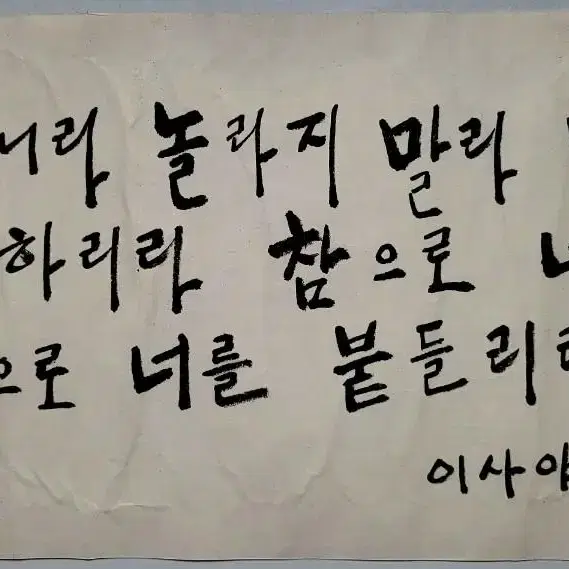 니라 놀라지 말라
하리라 참으로 너
으로 너를 붙들리라
이사야